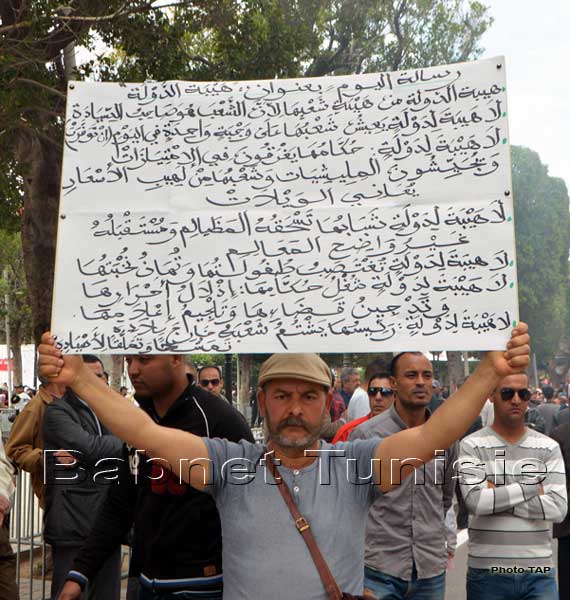 رسالة اليوم بعنوان: هيبة الدولة
هيبة الدولة من هيبة شعبها لأن الشعب هو صاحب السيادة
لا هيبة لدولة يعيش شعبها على وجبة واحدة في اليوم إن توفرت
لا هيبة لدولة حكامها يغرقون في الامتيازات
ويحتسون المليشيات وشعبها من لهيب الأسعار
يعاني الويلات
لا هيبة لدولة شبابها تسحقه المظالم ومستقبله
غير واضح المعالم
لا هيبة لدولة تغتصب طفولتها وتهان نخبتها
لا هيبة لدولة شغل حكامها: إذلال أحرارها
وتدجين قضاءها وتلجيم إعلامها
لا هيبة لدولة: رئيسها يشتم شعبه خارج بلاده
Babnet Tunisie
Photo TAP